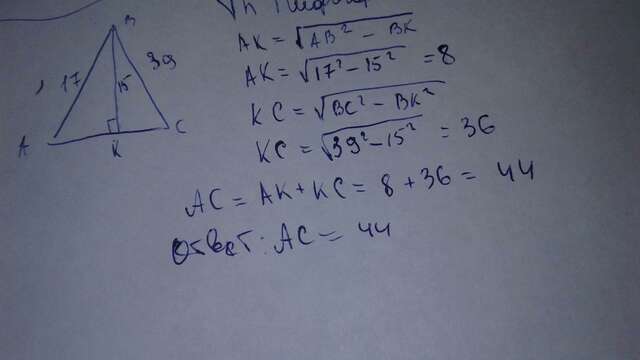 B
17
15
39
A
K
C
AK = √AB² - BK
AK = √17² - 15² = 8
KC = √BC² - BK²
KC = √39² - 15² = 36
AC = AK + KC = 8 + 36 = 44
Ответ: AC = 44